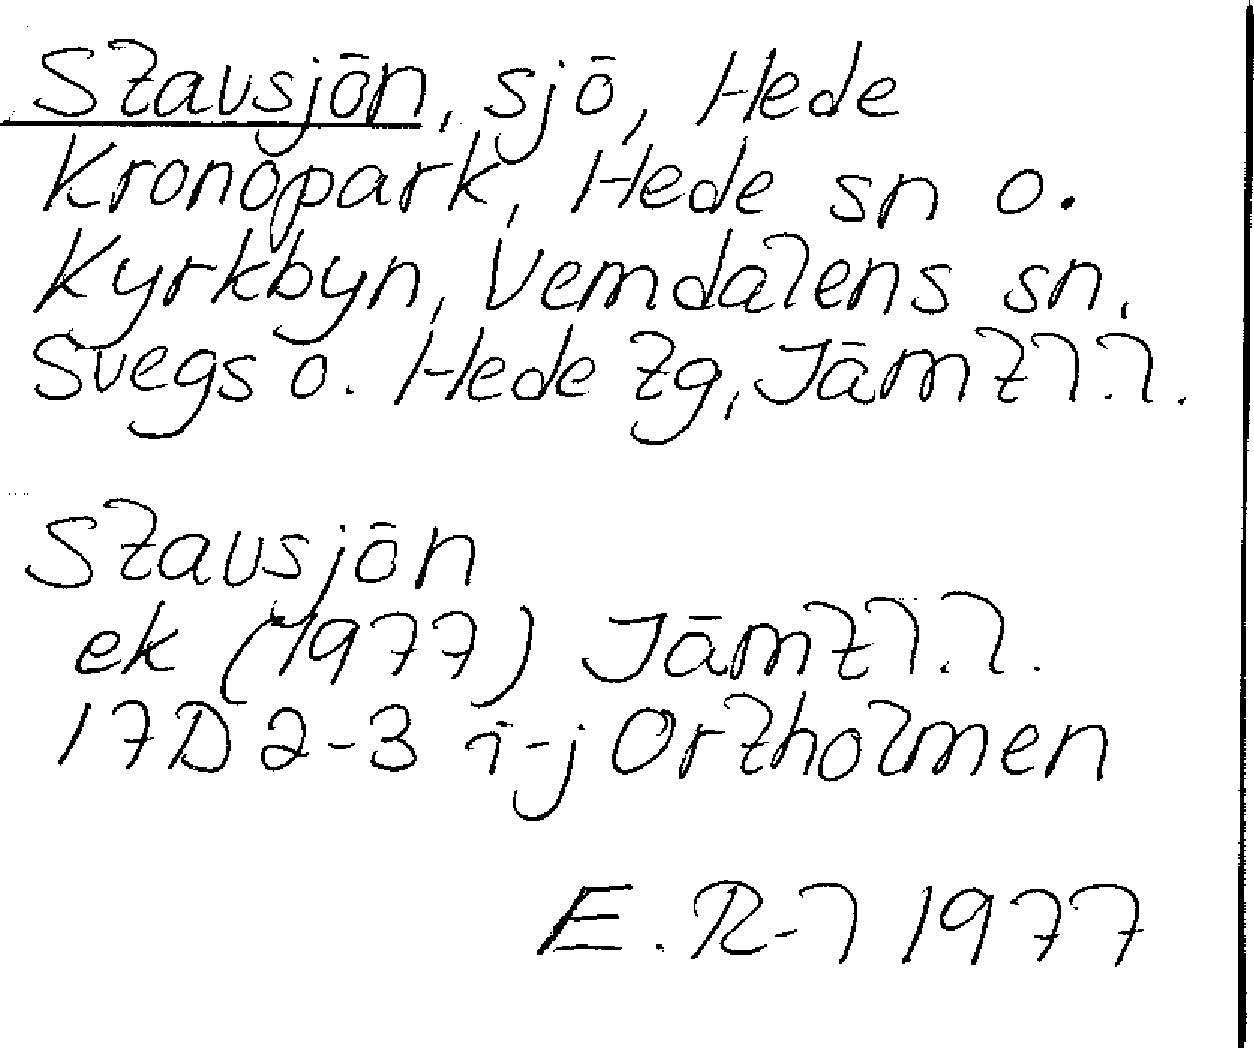 Stavsjön, sjö, Hede
Kronopark, Hede sn o.
Kyrkbyn, Vemdalens sn.
Svegs o. Hede tg, Jämtl.l.
Stavsjön
ek (1977) Jämtl.l.
17D 2-3 i-j Ortholmen
E. R-l 1977